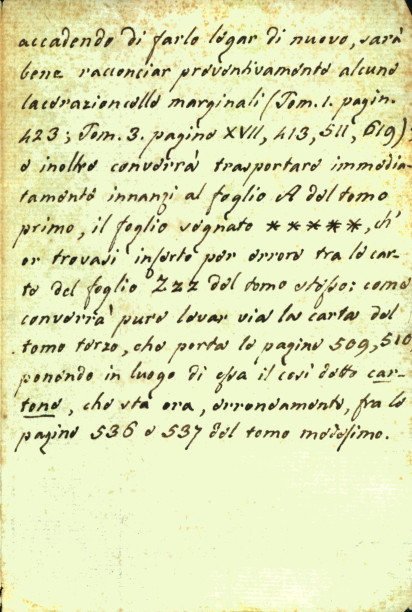 accadendo di farlo legar di nuovo, sarà
bene racconciar preventivamente alcune
lacerazioncelle marginali (Tom. 1. pagin.
423; Tom. 3. pagine XVII, 413, 511, 619);
e inoltre converrà trasportare immedia-
tamente innanzi al foglio A del tomo
primo, il foglio segnato *****, ch'
or trovasi inserto per errore tra le car-
te del foglio Zzz del tomo stesso: come
converrà pure levar via la carta del
tomo terzo, che porta le pagine 509, 510
ponendo in luogo di essa il così detto car-
tone, che sta ora, erroneamente, fra le
pagine 536 e 537 del tomo medesimo.